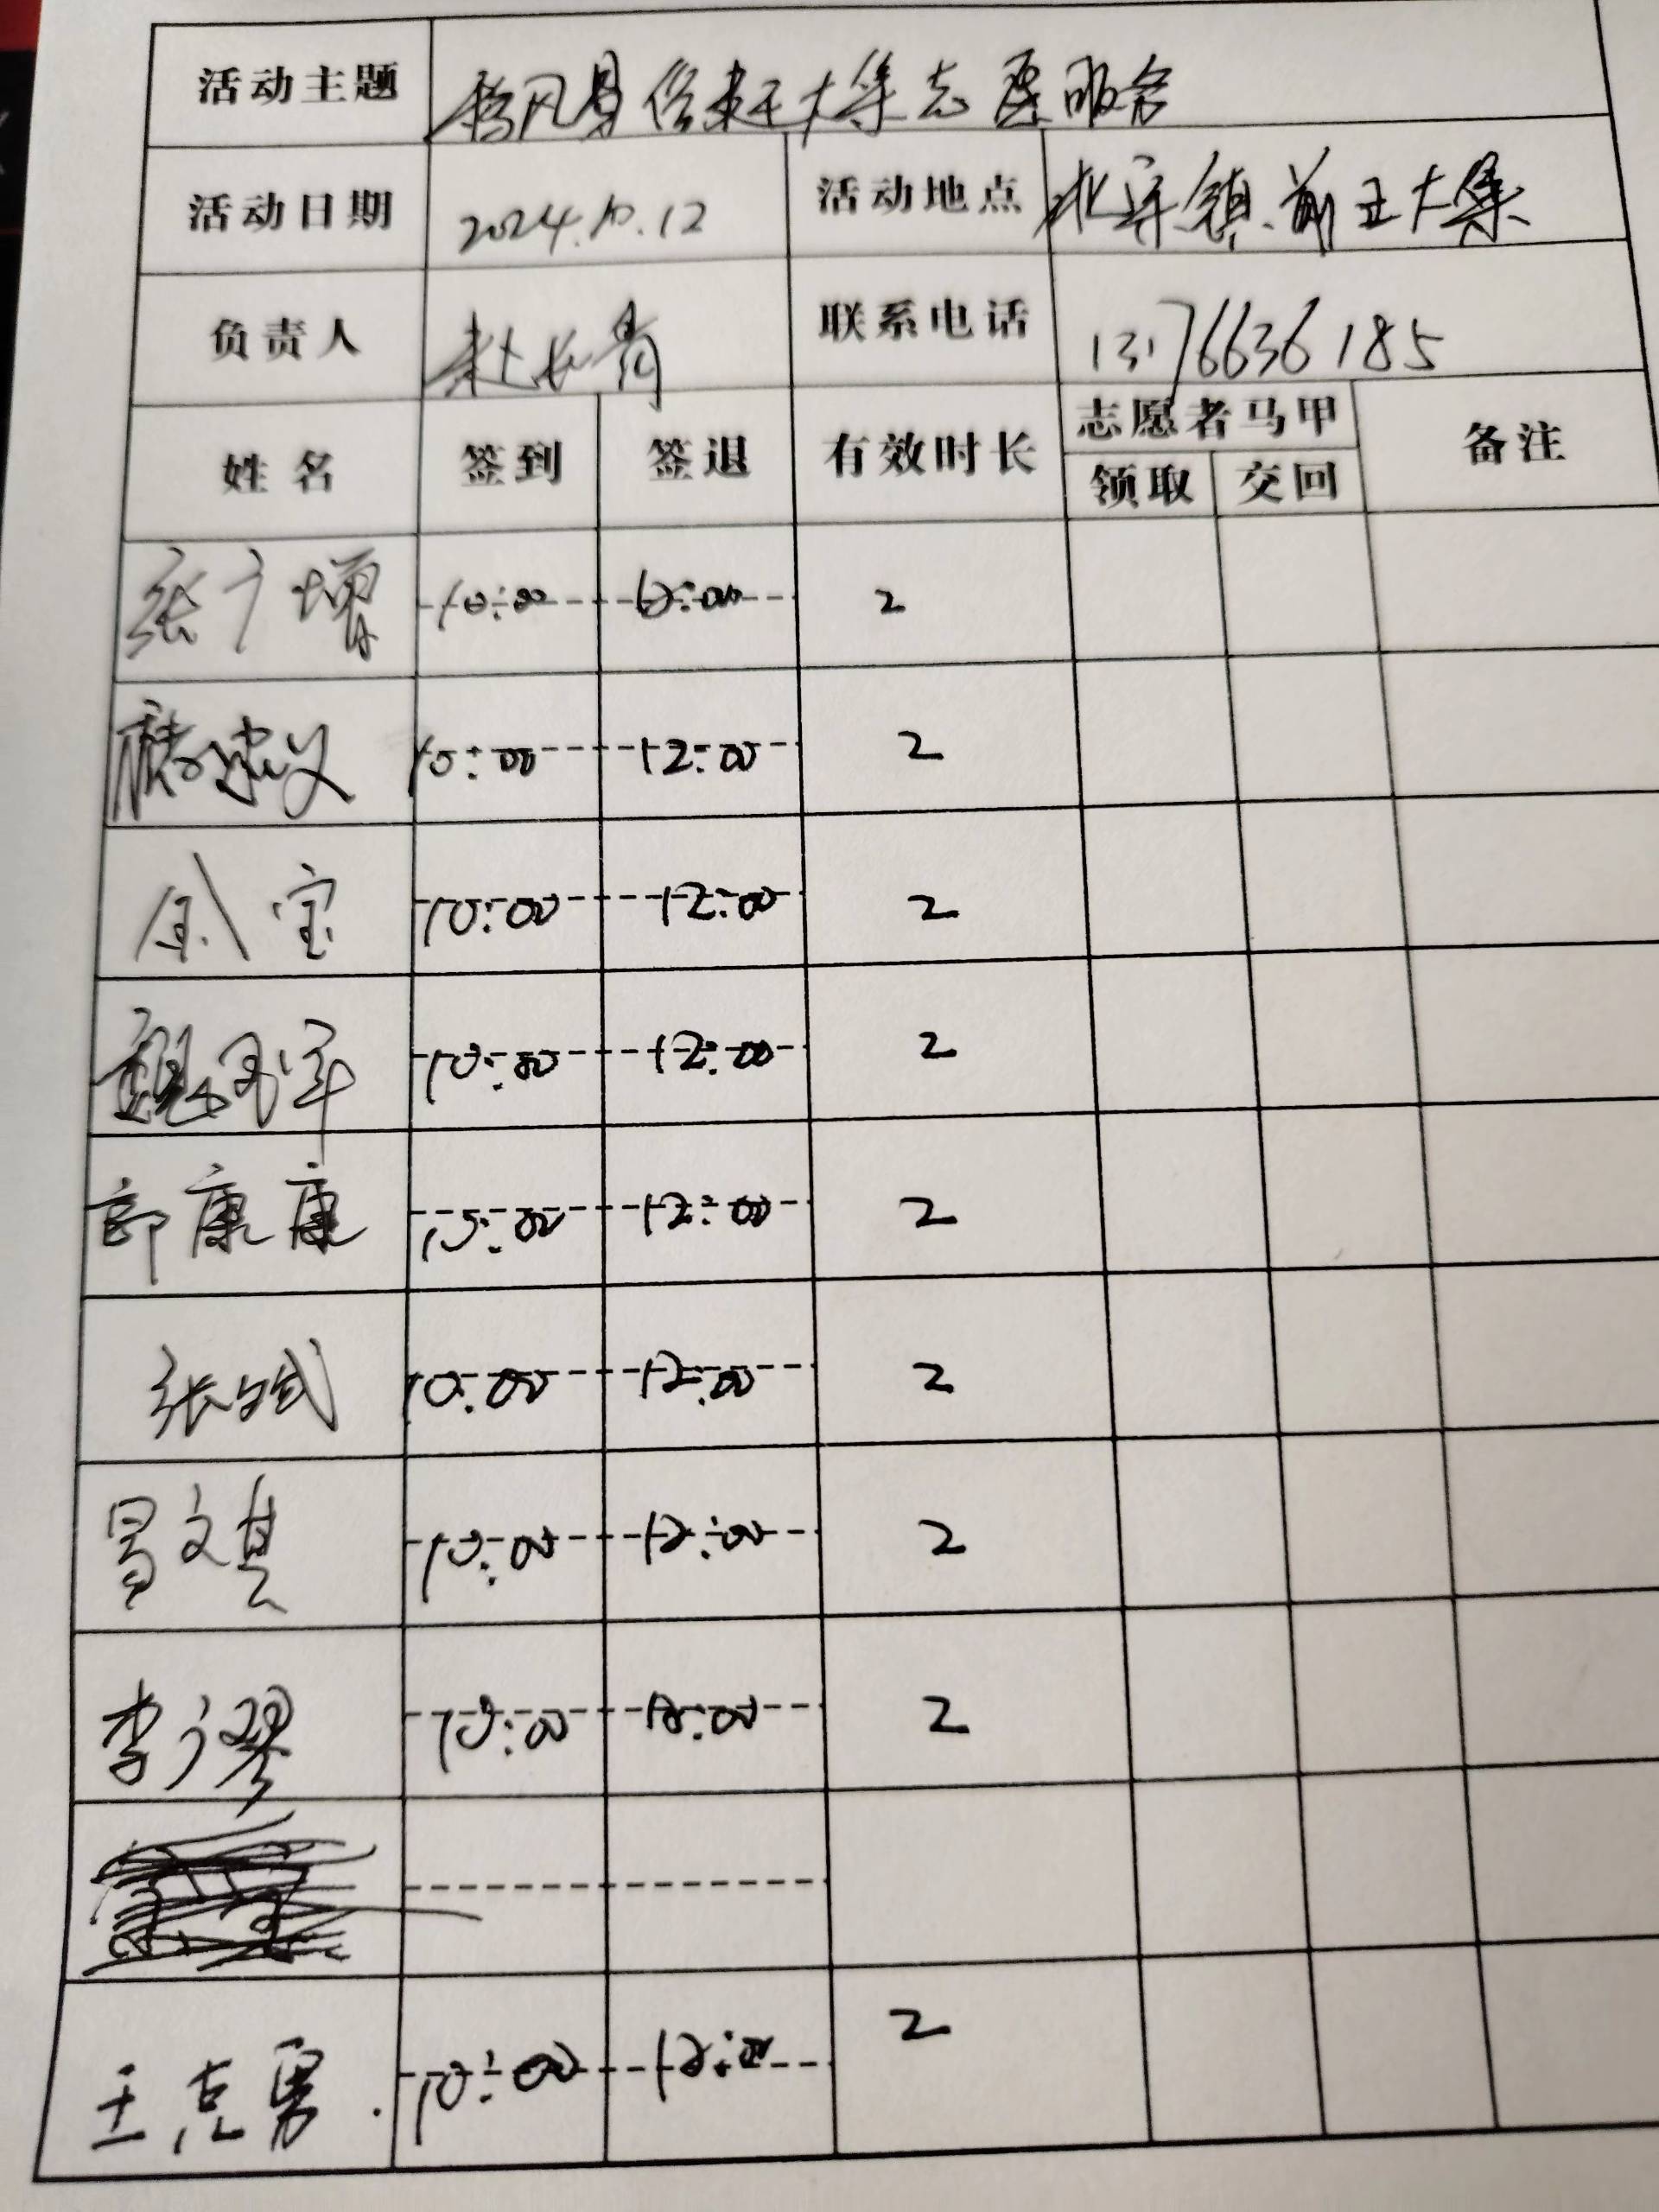 活动主题 移风易俗赶大集志愿服务
活动日期 2024.10.12 活动地点 北宋镇前王大集
负责人 赵长青 联系电话 13176636185
姓名 签到 签退 有效时长 志愿者马甲 备注
领取 交回
张广增 10:00 12:00 2
建义 10:00 12:00 2
宝 10:00 12:00 2
魏 军 10:00 12:00 2
郭康康 10:00 12:00 2
张 10:00 12:00 2
文 10:00 12:00 2
李广 10:00 12:00 2
王克勇 10:00 12:00 2